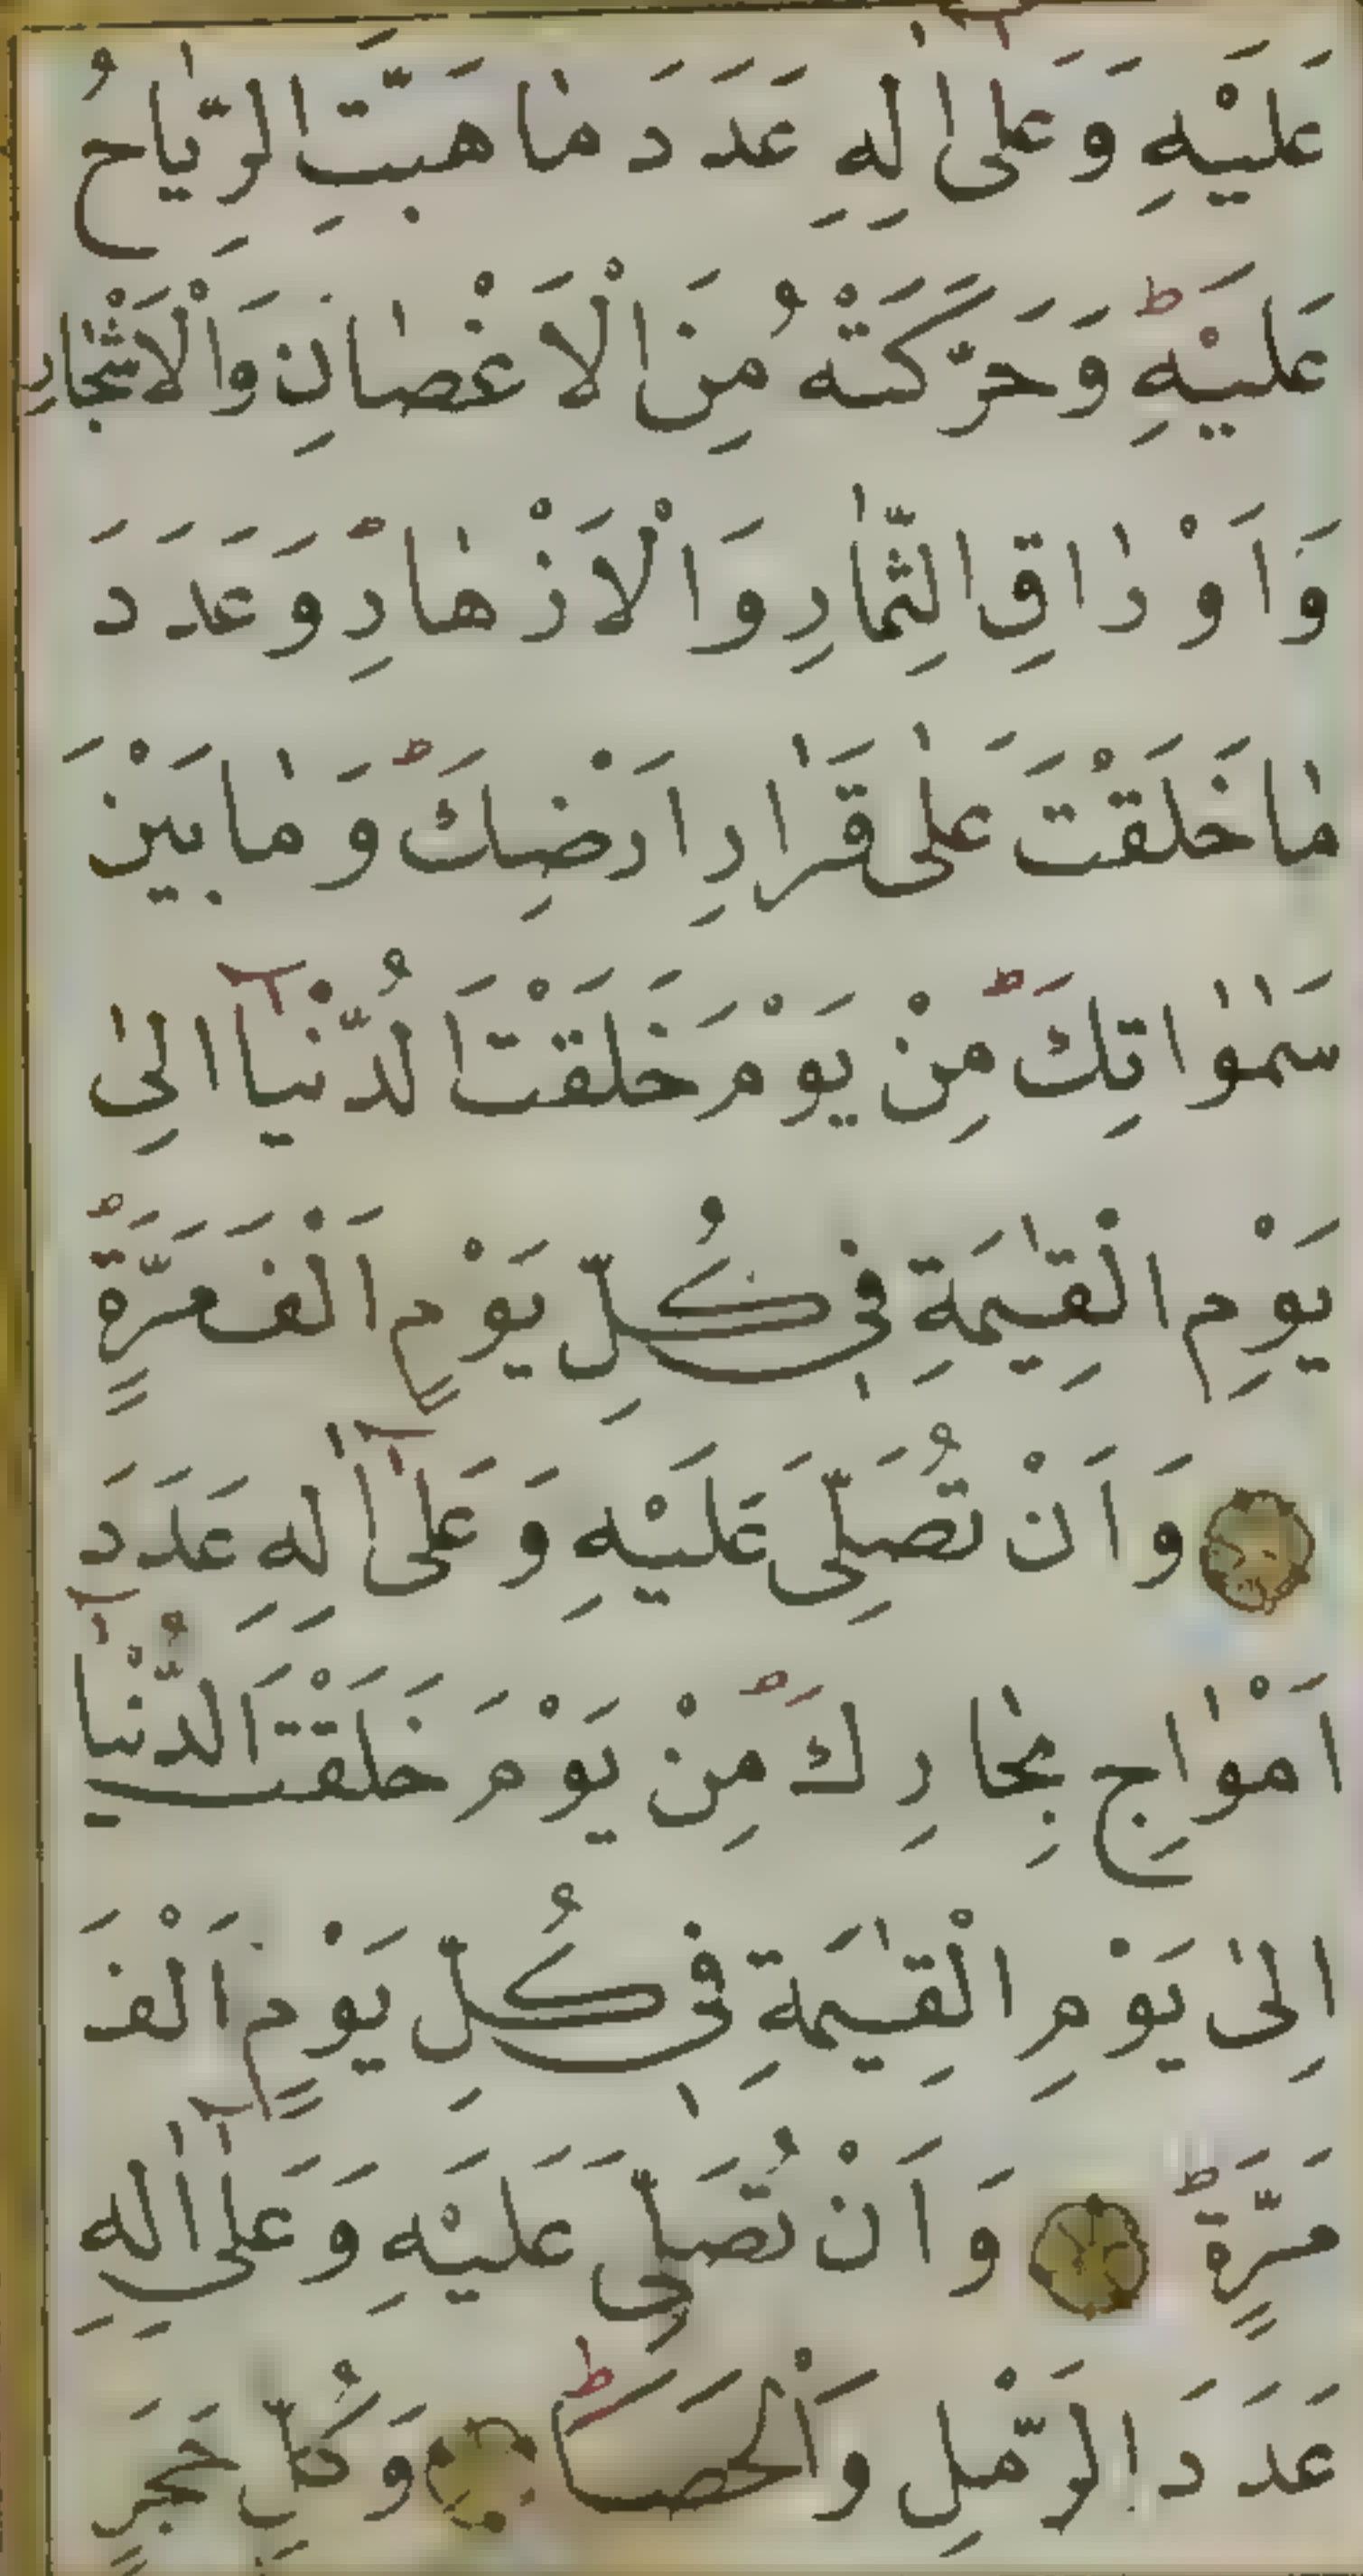 عَلَيْهِ وَعَلٰٓى اٰلِهِ عَدَدَ مَا هَبَّتِ الرِّيَاحُ
عَلَيْهِ ط وَحَرَّكَتْهُ مِنَ الْاَغْصَانِ وَالْاَشْجَارِ
وَاَوْرَاقِ الثِّمَارِ وَالْاَزْهَارِ وَعَدَدَ
مَا خَلَقْتَ عَلٰى قَرَارِ اَرْضِكَ ط وَمَا بَيْنَ
سَمٰوَاتِكَ ط مِنْ يَوْمَ خَلَقْتَ الدُّنْيَآ اِلٰى
يَوْمِ الْقِيٰمَةِ فِى كُلِّ يَوْمٍ اَلْفَ مَرَّةٍ ط
وَاَنْ تُصَلِّىَ عَلَيْهِ وَعَلٰٓى اٰلِهِ عَدَدَ
اَمْوَاجِ بِحَارِكَ مِنْ يَوْمَ خَلَقْتَ الدُّنْيَآ
اِلٰى يَوْمِ الْقِيٰمَةِ فِى كُلِّ يَوْمٍ اَلْفَ
مَرَّةٍ ط وَاَنْ تُصَلِّىَ عَلَيْهِ وَعَلٰٓى اٰلِهِ
عَدَدَ الرَّمْلِ وَالْحَصَا ط وَكُلِّ حَجَرٍ